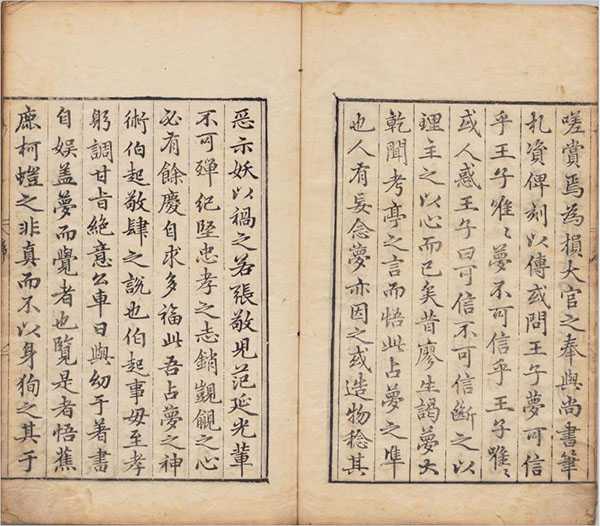 嗟賞焉為損大官之奉與尚書筆
札資俾刻以傳或問王子夢可信
乎王子唯〻夢不可信乎王子唯〻
或人惑王子曰可信不可信斷之以
理主之以心而已矣昔廖生謁夢大
乾聞考亭之言而悟此占夢之準
也人有妄念夢亦因之或造物稔其
惡示妖以禍之若張敬兒范延光輩
不可殫紀堅忠孝之志銷覬覦之心
必有餘慶自求多福此吾占夢之神
術伯起敬肆之說也伯起事母至孝
躬調甘旨絕意公車日與幼于著書
自娛盖夢而覺者也覽是者悟蕉
鹿柯螘之非真而不以身狥之其于